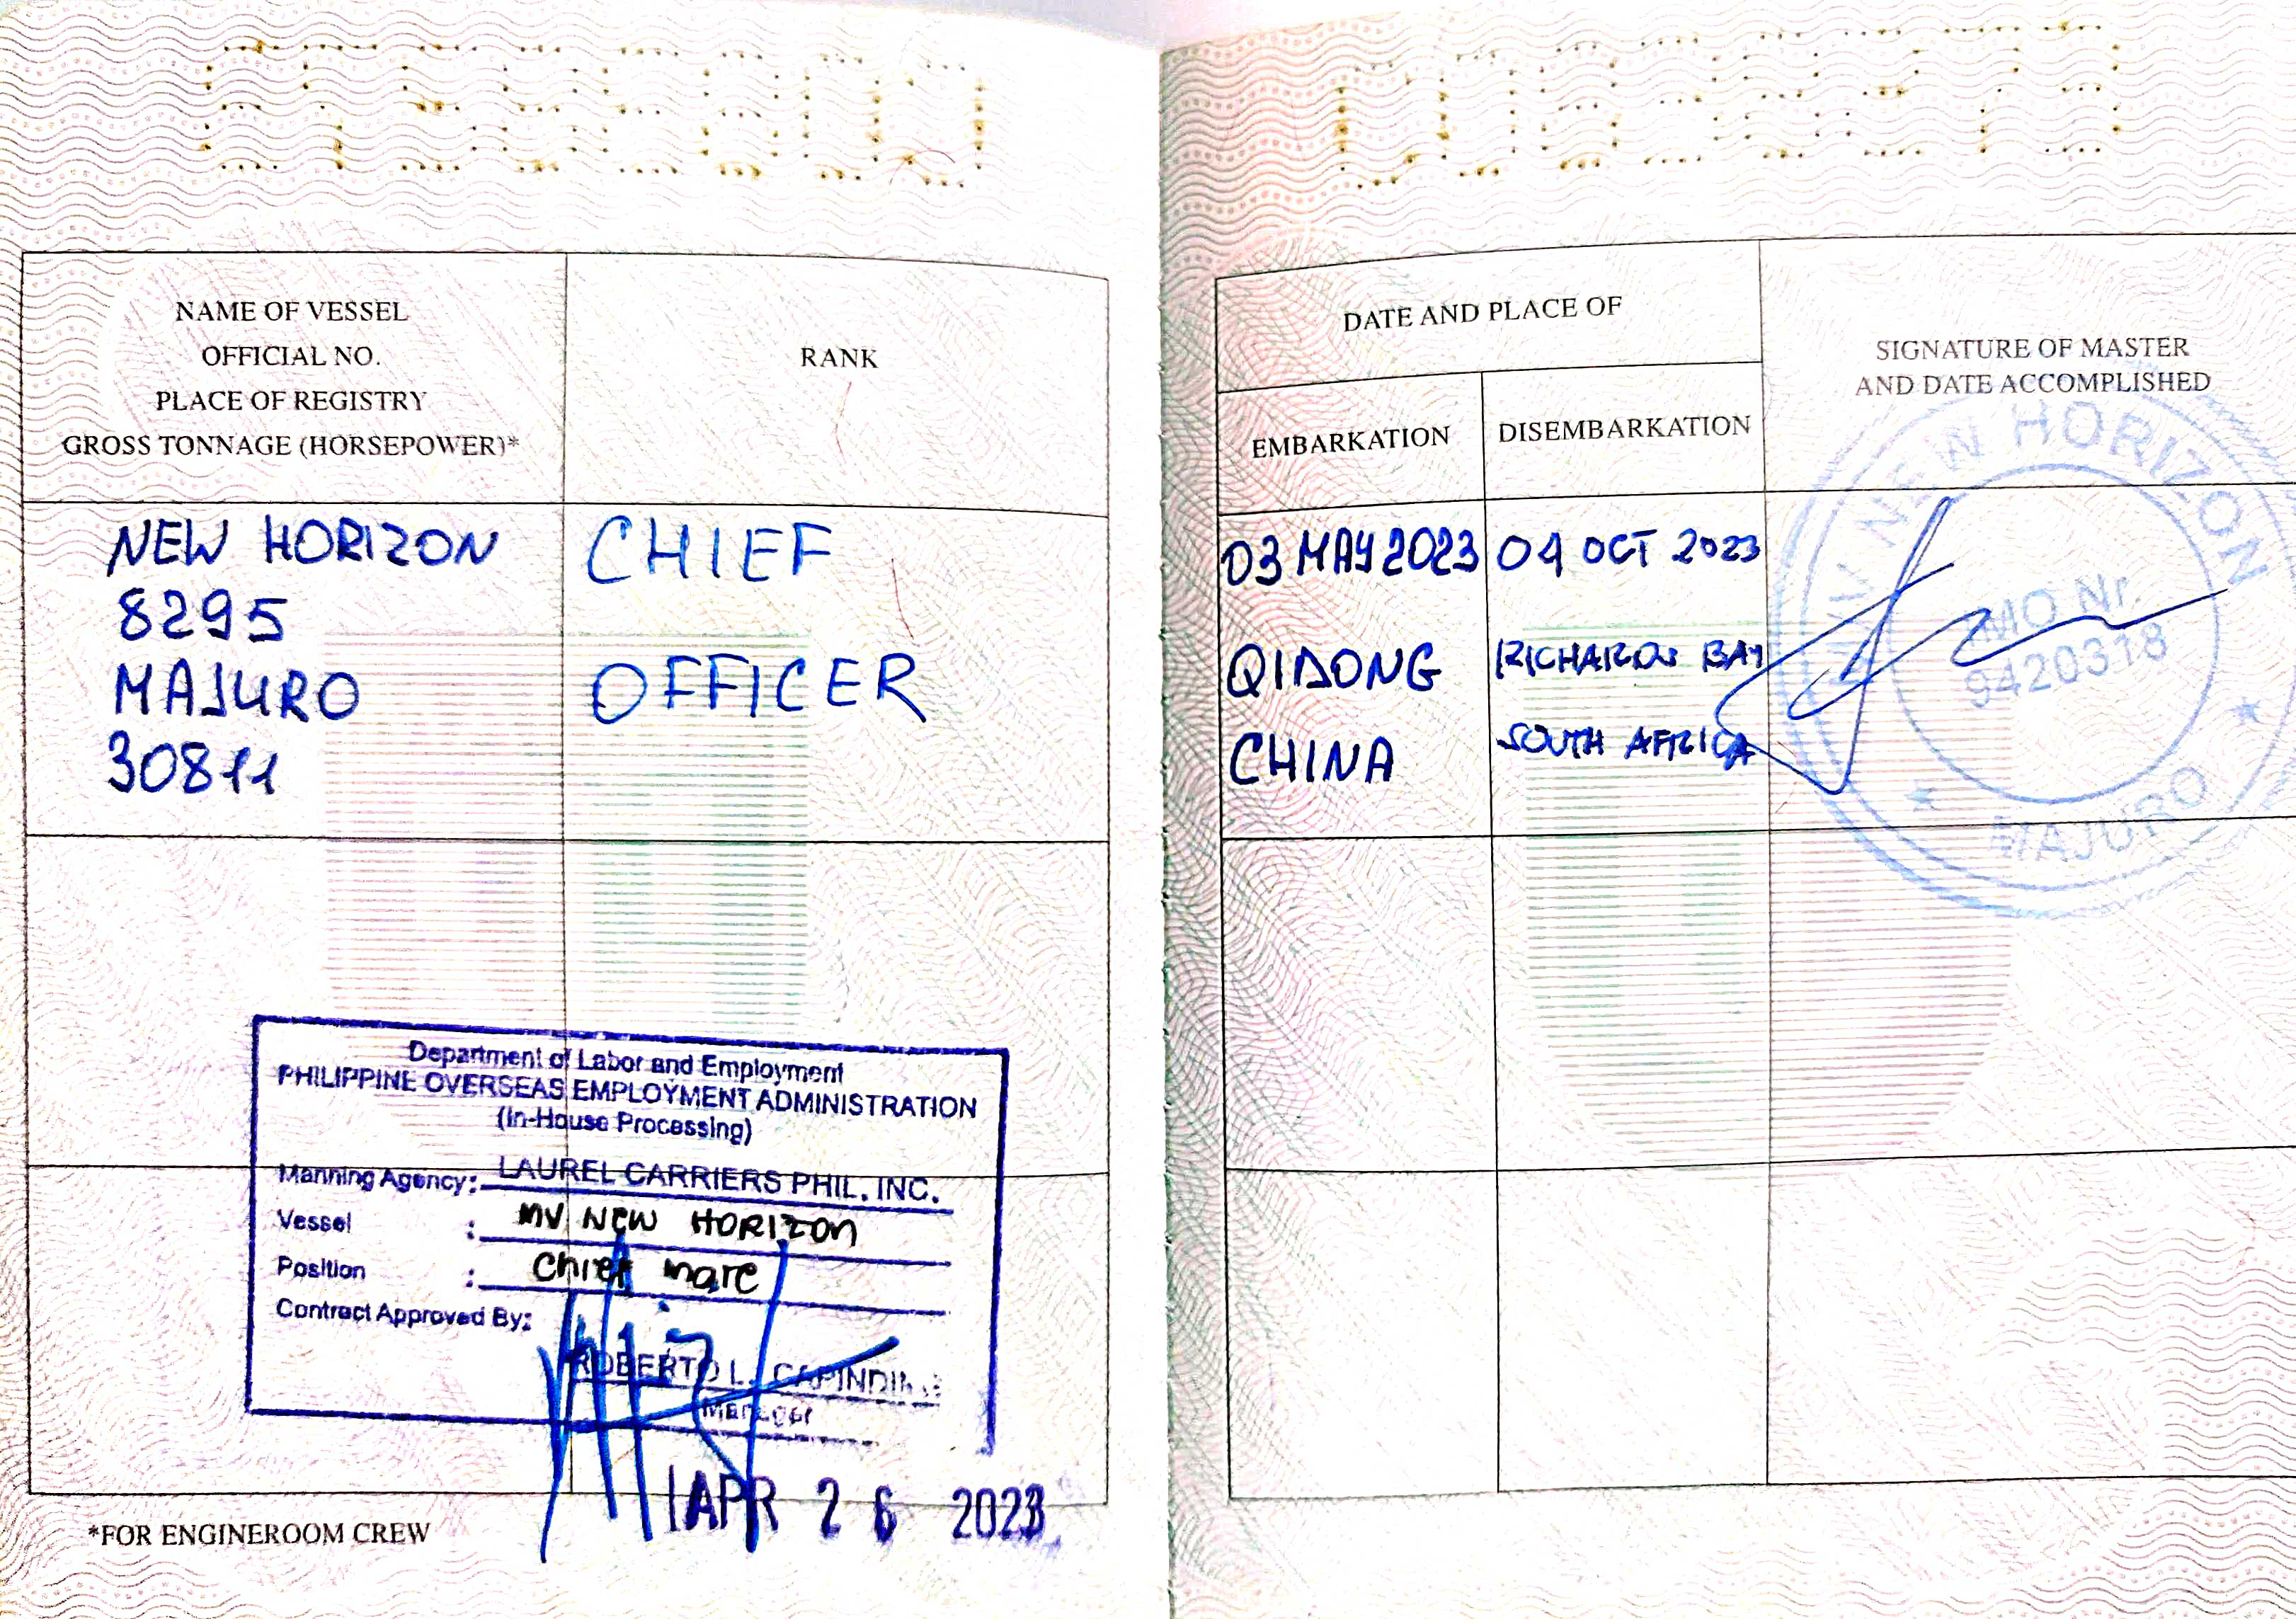 NAME OF VESSEL
OFFICIAL NO.
PLACE OF REGISTRY
GROSS TONNAGE (HORSEPOWER)*
RANK
NEW HORIZON
8295
MAJURO
30811
CHIEF
OFFICER
Department of Labor and Employment
PHILIPPINE OVERSEAS EMPLOYMENT ADMINISTRATION
(In-House Processing)
Manning Agency: LAUREL CARRIERS PHIL. INC.
Vessel : MV NEW HORIZON
Position : Chief mate
Contract Approved By:
ROBERTO L.
Manager
APR 26 2023
*FOR ENGINEROOM CREW
DATE AND PLACE OF
EMBARKATION
DISEMBARKATION
SIGNATURE OF MASTER
AND DATE ACCOMPLISHED
03 MAY 2023
QIDONG
CHINA
04 OCT 2023
RICHARDS BAY
SOUTH AFRICA
MV NEW HORIZON
IMO Nr.
9420318
MAJURO